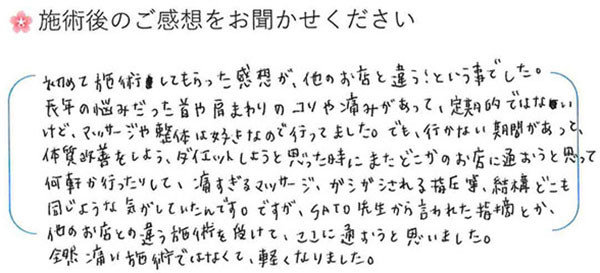 施術後のご感想をお聞かせください
初めて施術してもらった感想が、他のお店と違う!という事でした。
長年の悩みだった首や肩まわりのコリや痛みがあって、定期的ではない
けど、マッサージや整体は好きなので行ってました。でも、行かない期間があって、
体質改善をしよう、ダイエットしようと思った時にまたどこかのお店に通おうと思って
何軒か行ったりして、痛すぎるマッサージ、がうがうされる指圧等、結構どこも
同じような気がしていたんです。ですが、SATO先生から言われた指摘とか、
他のお店との違う施術を受けて、ここに通おうと思いました。
全然痛い施術ではなくて、軽くなりました。